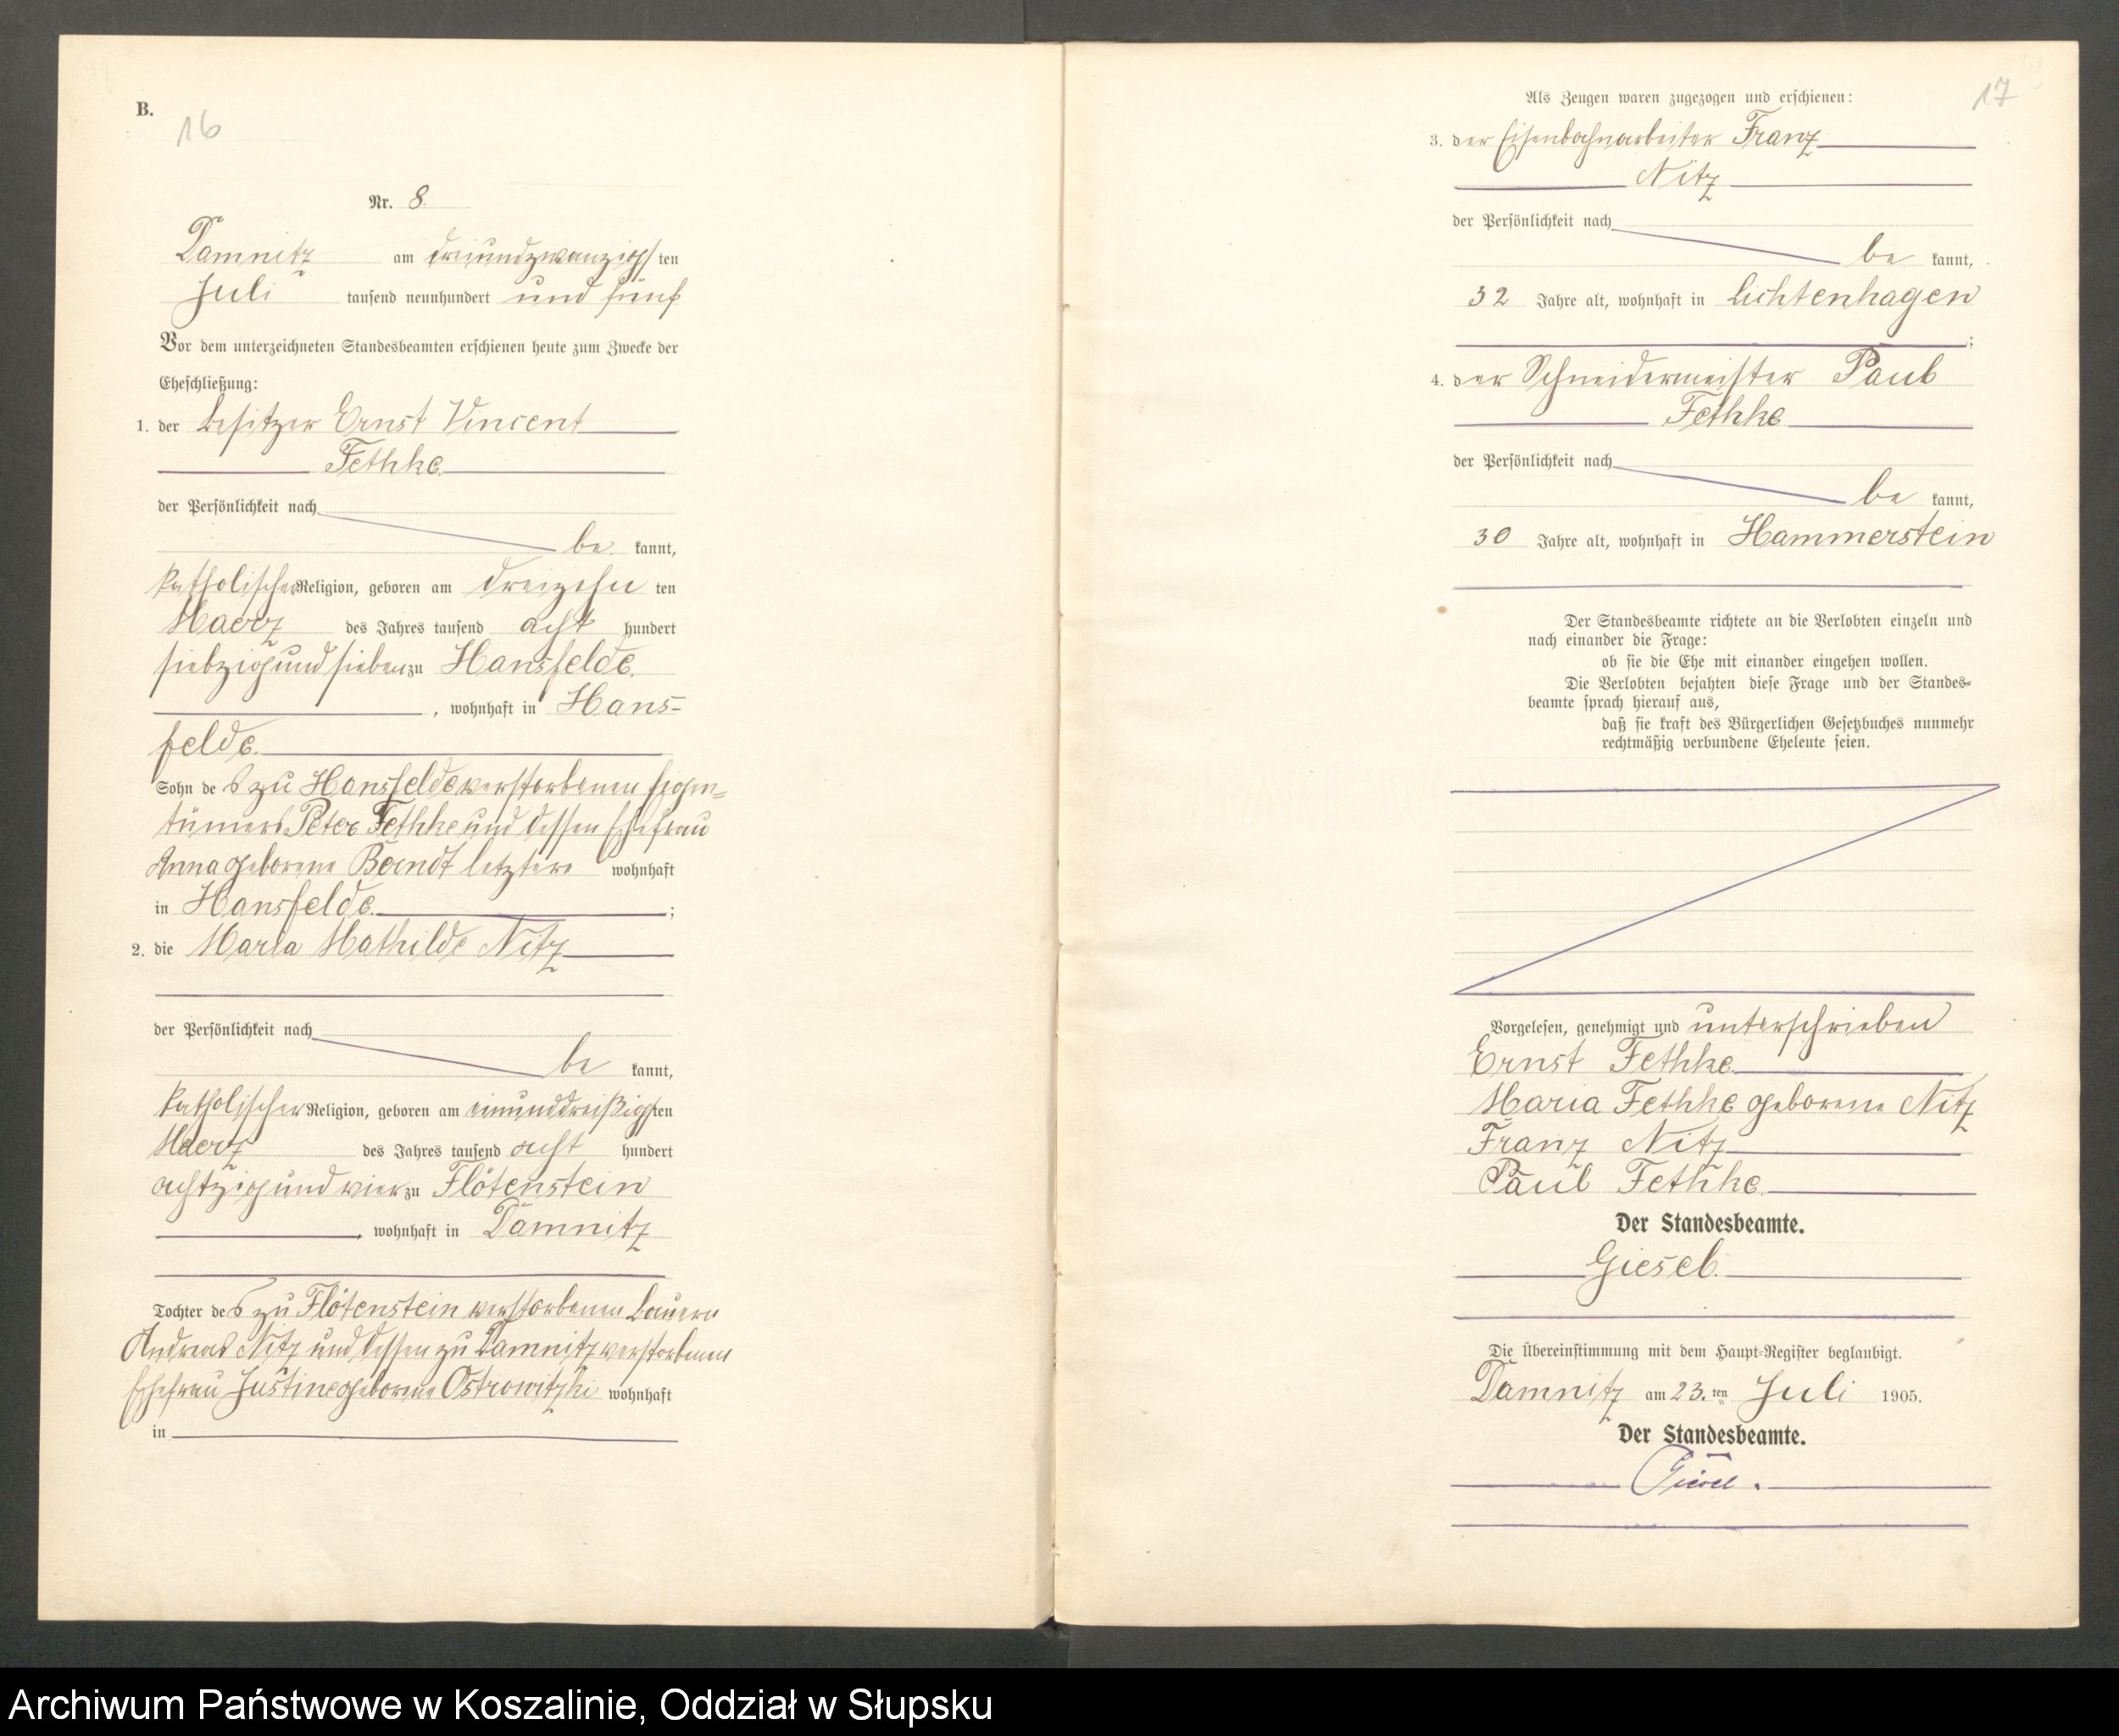 B.
16
Nr. 8.
Damnitz am dreiundzwanzigsten
Juli tausend neunhundert und fünf
Vor dem unterzeichneten Standesbeamten erschienen heute zum Zwecke der
Eheschließung:
1. der Besitzer Ernst Vincent
Fethke
der Persönlichkeit nach
be kannt,
katholischer Religion, geboren am dreizehn ten
Maerz des Jahres tausend acht hundert
siebzig und sieben zu Hansfelde.
, wohnhaft in Hans-
felde.
Sohn des zu Hansfelde verstorbenen Eigen-
tümers Peter Fethke und dessen Ehefrau
Anna geborene Berndt letztere wohnhaft
in Hansfelde. ;
2. die Maria Mathilde Nitz
der Persönlichkeit nach
be kannt,
katholischer Religion, geboren am einunddreißigsten
Maerz des Jahres tausend acht hundert
achtzig und vier zu Flötenstein
, wohnhaft in Damnitz
Tochter des zu Flötenstein verstorbenen Bauern
Andreas Nitz und dessen zu Damnitz verstorbenen
Ehefrau Justine geborene Ostrowitzki wohnhaft
in
17
Als Zeugen waren zugezogen und erschienen:
3. der Eisenbahnarbeiter Franz
Nitz
der Persönlichkeit nach
be kannt,
32 Jahre alt, wohnhaft in Lichtenhagen
;
4. der Schneidermeister Paul
Fethke
der Persönlichkeit nach
be kannt,
30 Jahre alt, wohnhaft in Hammerstein
Der Standesbeamte richtete an die Verlobten einzeln und
nach einander die Frage:
ob sie die Ehe mit einander eingehen wollen.
Die Verlobten bejahten diese Frage und der Standes-
beamte sprach hierauf aus,
daß sie kraft des Bürgerlichen Gesetzbuches nunmehr
rechtmäßig verbundene Eheleute seien.
Vorgelesen, genehmigt und unterschrieben
Ernst Fethke
Maria Fethke geborene Nitz
Franz Nitz
Paul Fethke
Der Standesbeamte.
Giesel.
Die Übereinstimmung mit dem Haupt-Register beglaubigt.
Damnitz am 23. ten Juli 1905.
Der Standesbeamte.
Giesel.
Archiwum Państwowe w Koszalinie, Oddział w Słupsku